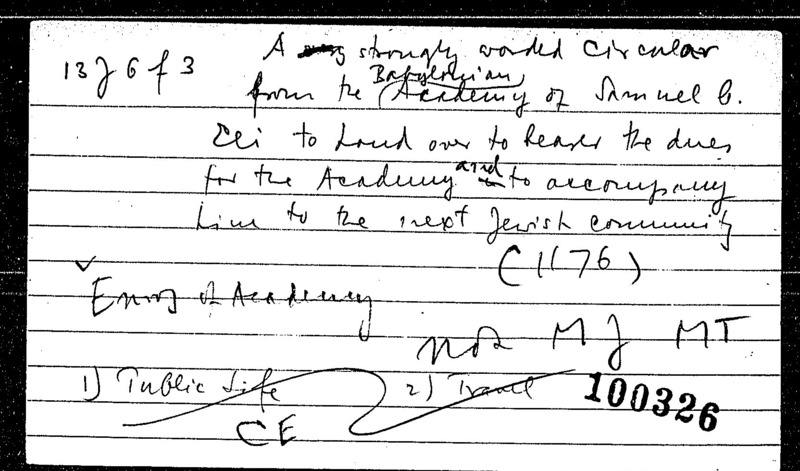 13 J 6 f 3
A strongly worded circular
from the Babylonian Academy of Samuel b.
Eli to hand over to bearer the dues
for the Academy and to accompany
him to the next Jewish community
(1176)
Envoy of Academy
not MJ MT
1) Public Life 2) Travel
100326
CE